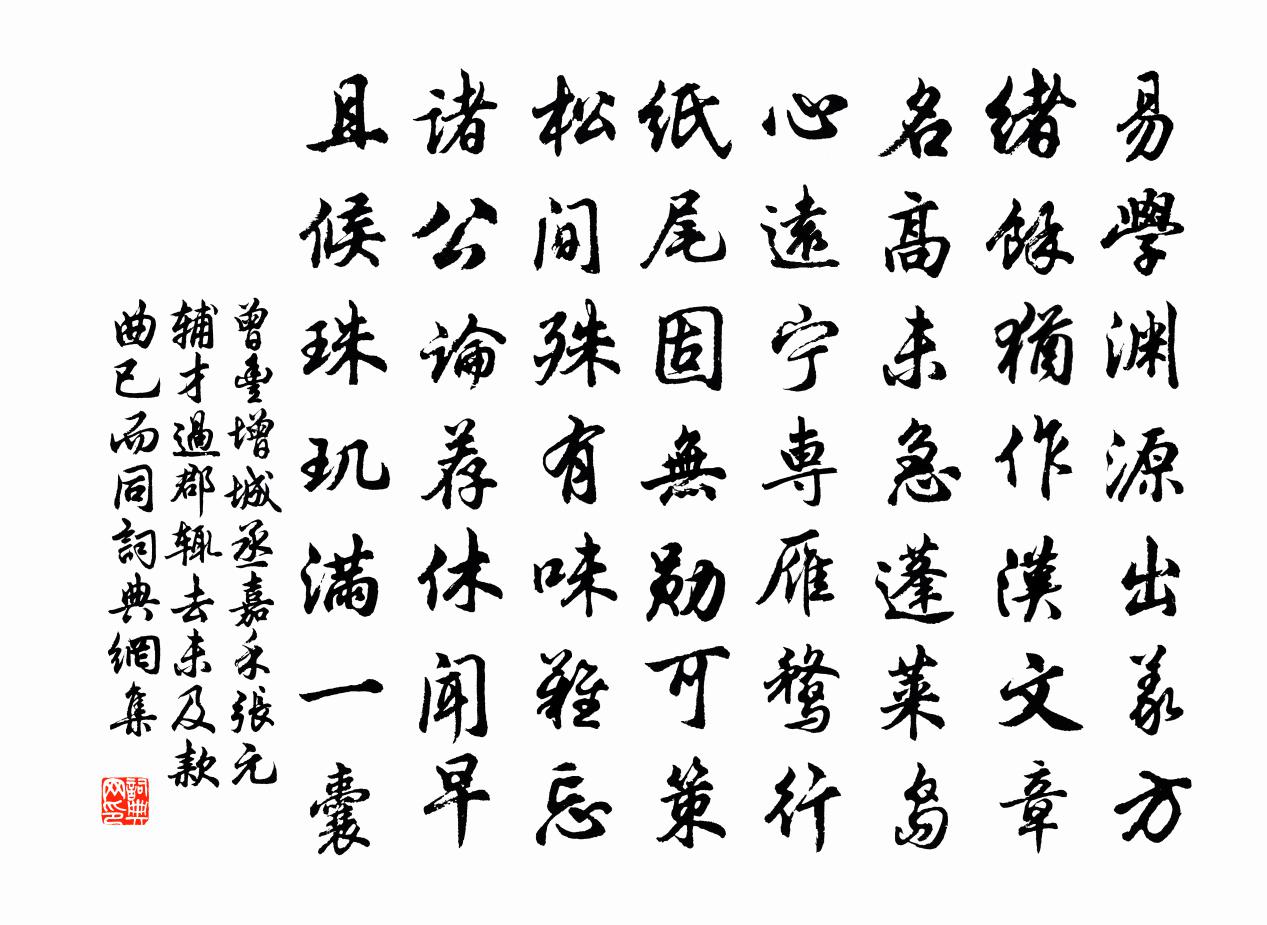 易學渊源出义方
绪餘猶作漢文章
名高未急蓬萊島
心遠宁専雁鹜行
纸尾固無勋可策
松间殊有味难忘
诸公论荐休闻早
且候珠玑满一囊
曾豊增城丞嘉禾張元
辅才過郡辄去未及款
曲已而同詞典網集
詞典网印